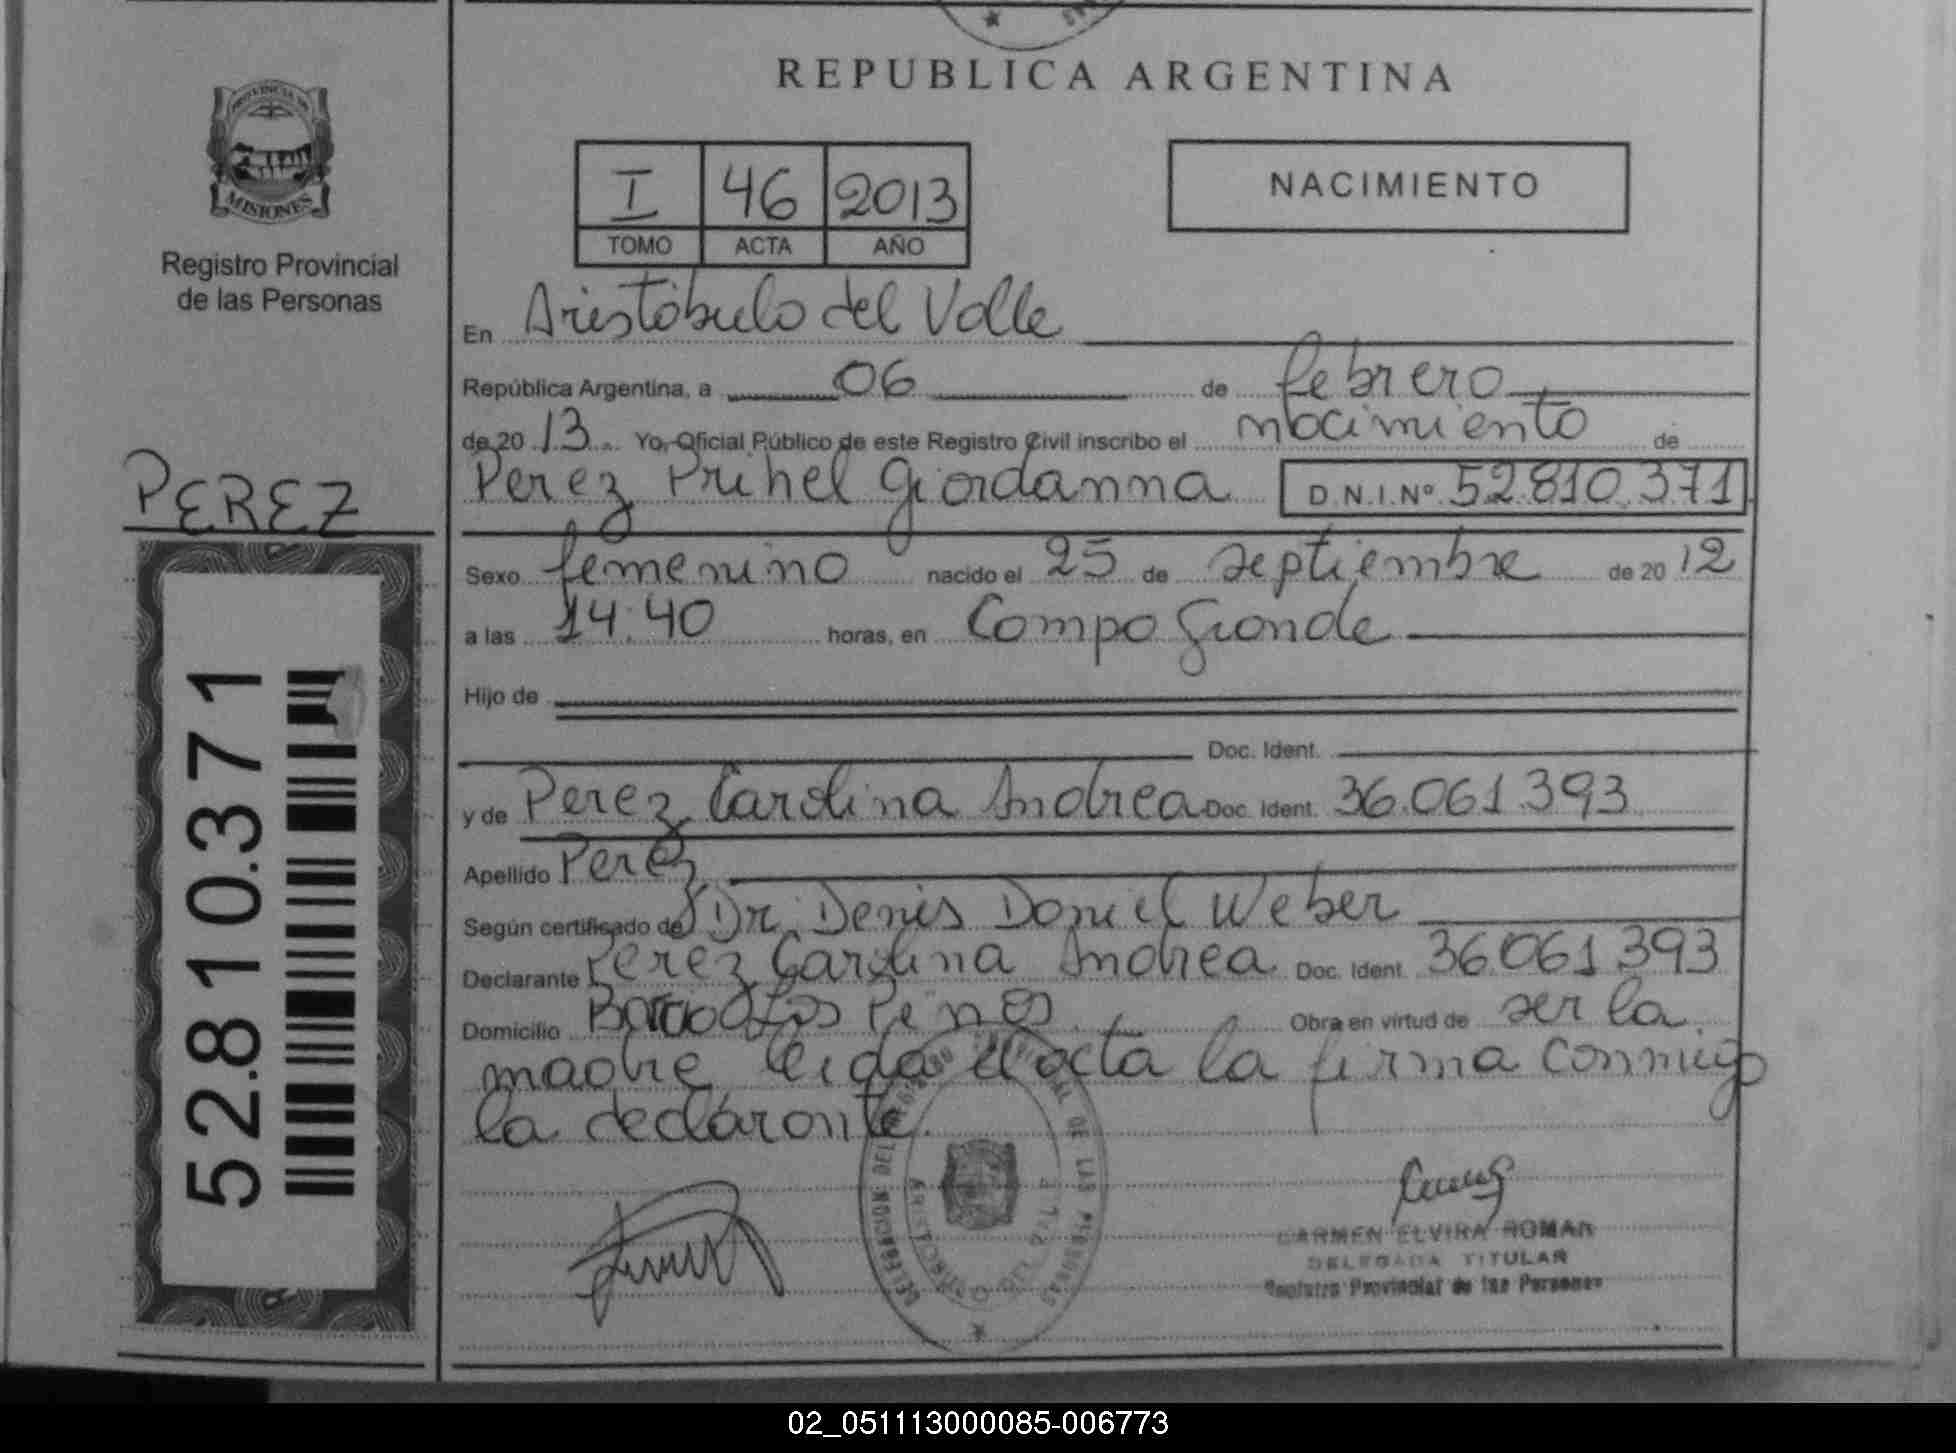 REPUBLICA ARGENTINA
PROVINCIA DE
MISIONES
Registro Provincial
de las Personas
I 46 2013
TOMO ACTA AÑO
NACIMIENTO
En Aristóbulo del Valle
República Argentina, a 06 de febrero
de 20 13 Yo, Oficial Público de este Registro Civil inscribo el nacimiento de
PEREZ
Perez Prihel Giordanna D.N.I.Nº 52.810.371
Sexo femenino nacido el 25 de septiembre de 20 12
a las 14:40 horas, en Campo Grande
Hijo de
Doc. Ident.
y de Perez Carolina Andrea Doc. Ident. 36.061.393
Apellido Perez
Según certificado de Dr. Denis Daniel Weber
Declarante Perez Carolina Andrea Doc. Ident. 36.061.393
Domicilio Barrio Los Pinos Obra en virtud de ser la
madre leida el acta la firma conmigo
la declarante.
52.810.371
CARMEN ELVIRA ROMAN
DELEGADA TITULAR
Registro Provincial de las Personas
02_051113000085-006773